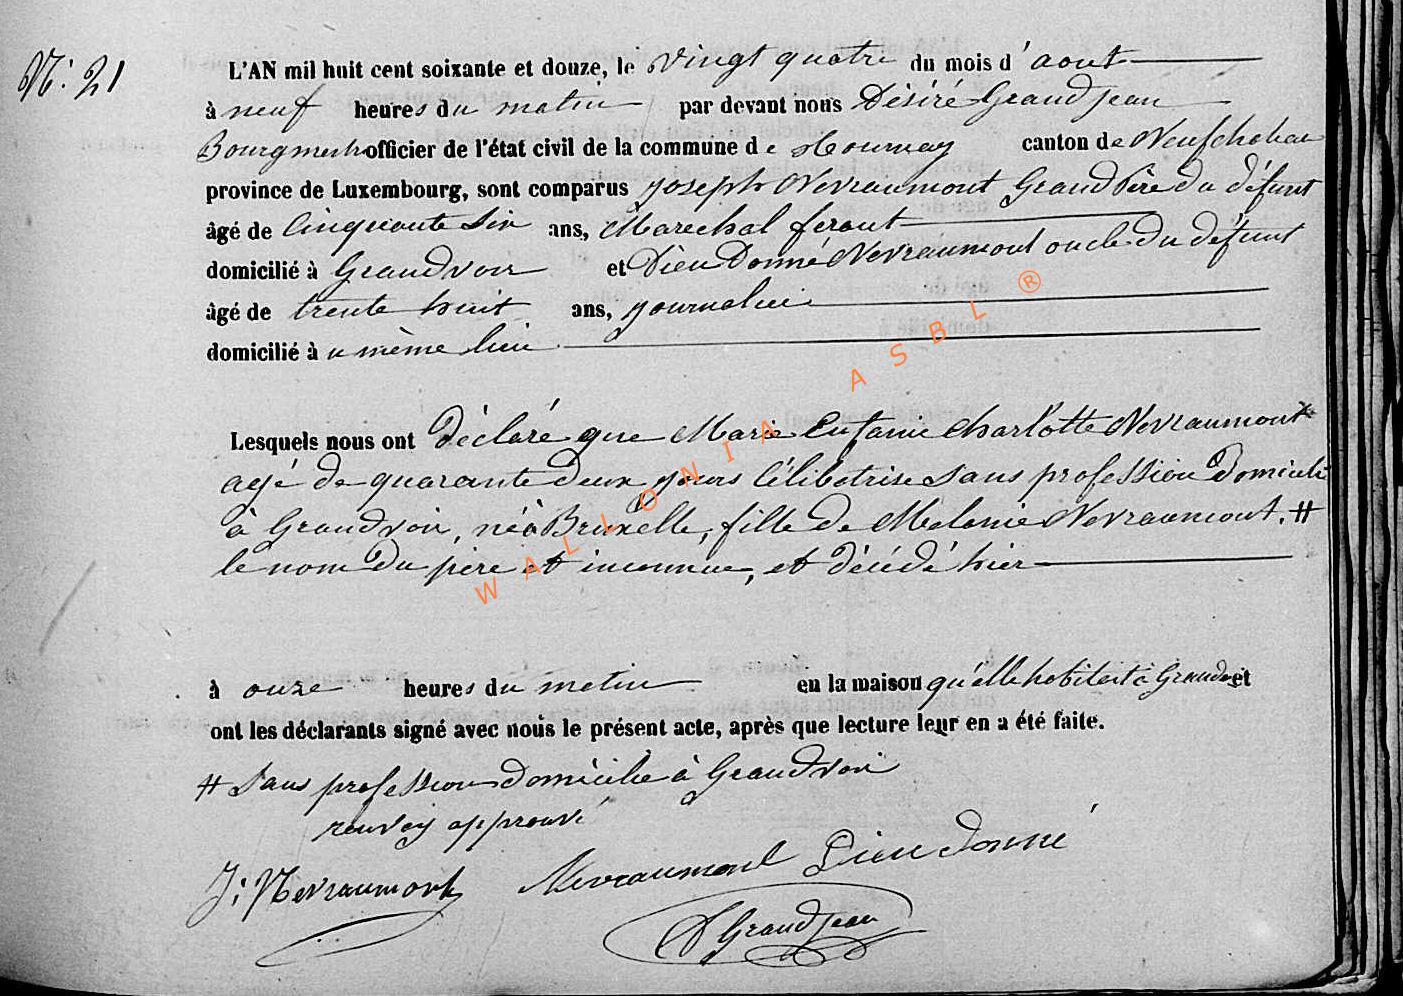 N: 21
L'AN mil huit cent soixante et douze, le vingt quatre du mois d'aout
à neuf heures du matin par devant nous Désiré Grandjean
Bourgmestre officier de l'état civil de la commune de Tournay canton de Neufchateau
province de Luxembourg, sont comparus Joseph Nevraumont Grand Père du défunt
âgé de Cinquante Six ans, Marechal ferant
domicilié à Grandvoir et Dieu Donné Nevraumont oncle du défunt
âgé de trente huit ans, journalier
domicilié à u même lieu
Lesquels nous ont déclaré que Marie Eufanie Charlotte Nevraumont
agé de quarante deux jours Célibatrise Sans profession Domicilié
à Grandvoir, né à Bruxelle, fille de Melanie Nevraumont, #
le nom du père et inconnue, et décédé hier
à onze heures du matin en la maison qu'elle habitait à Grandvoir et
ont les déclarants signé avec nous le présent acte, après que lecture leur en a été faite.
# Sans profession domicilie à Grandvoir
renvoy approuvé
J: Nevraumont Nevraumont Dieudonné
D Grandjean
WALLONIA ASBL ®